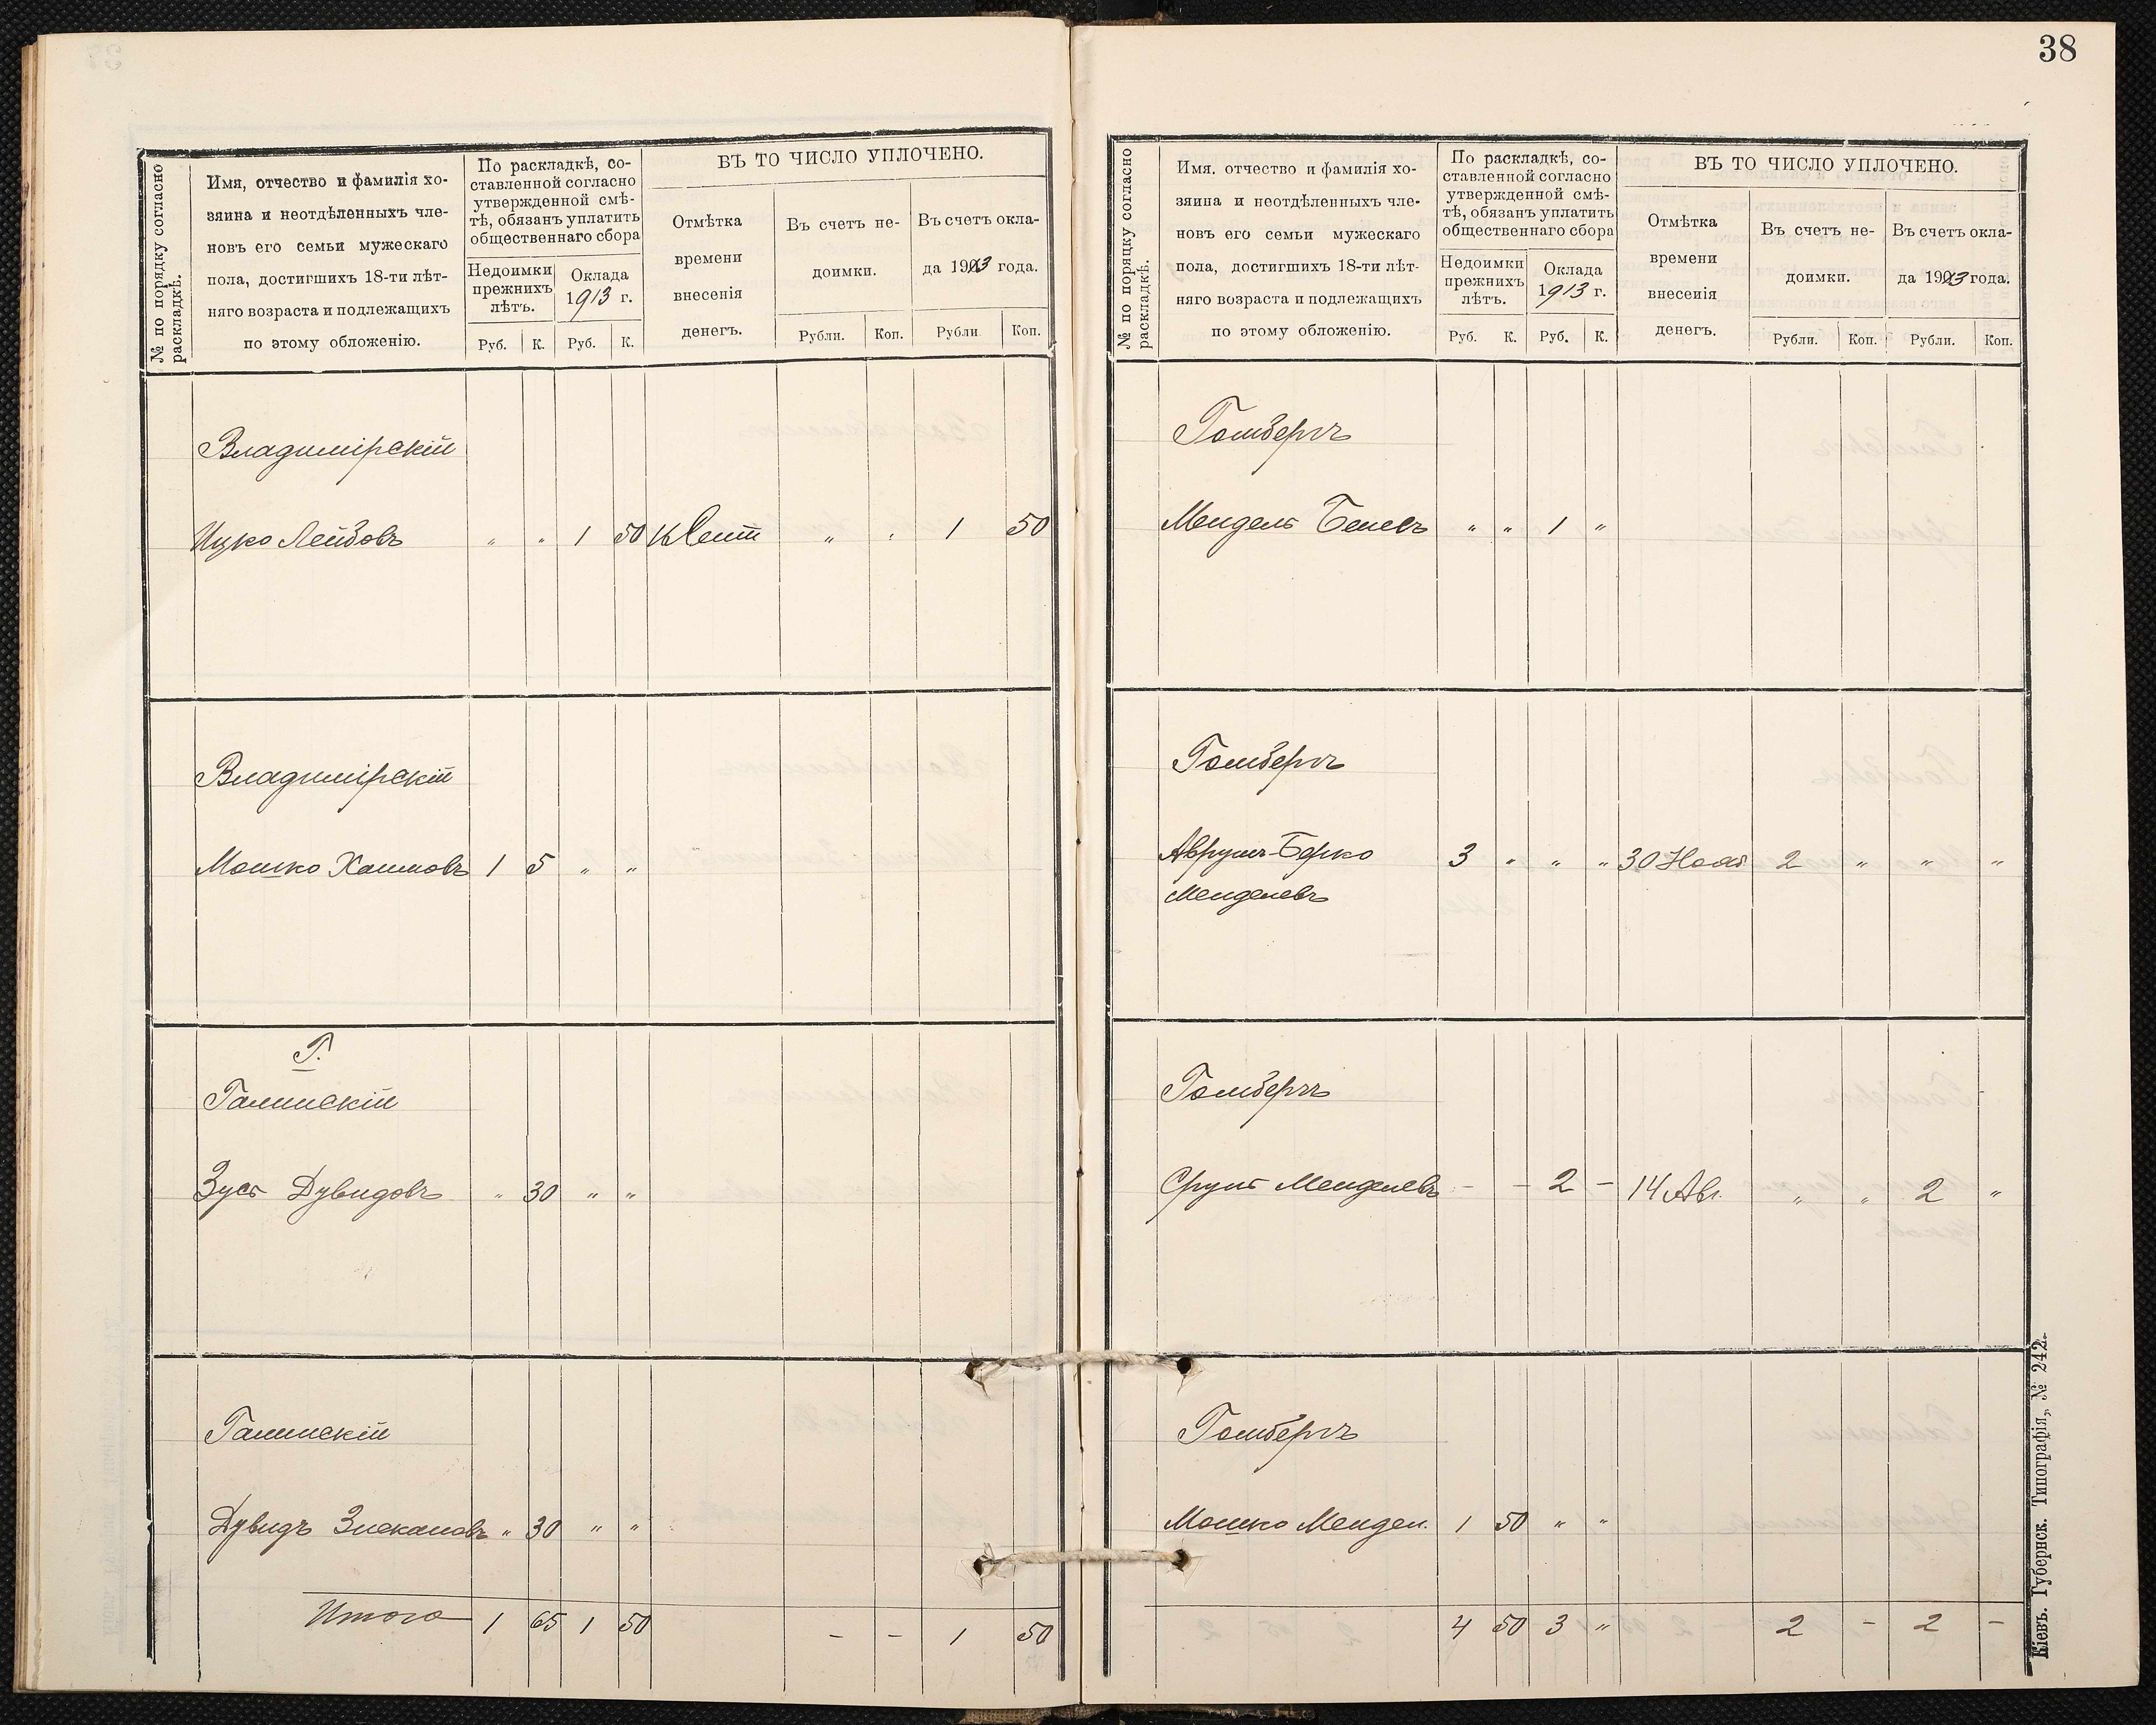 38
№ по порядку согласно раскладкѣ.
Имя, отчество и фамилія хо-
зяина и неотдѣленныхъ чле-
новъ его семьи мужескаго
пола, достигшихъ 18-ти лѣт-
няго возраста и подлежащихъ
по этому обложенію.
По раскладкѣ, со-
ставленной согласно
утвержденной смѣ-
тѣ, обязанъ уплатить
общественнаго сбора
Недоимки
прежнихъ
лѣтъ.
Оклада
1913 г.
Руб. К. Руб. К.
ВЪ ТО ЧИСЛО УПЛОЧЕНО.
Отмѣтка
времени
внесенія
денегъ.
Въ счетъ не-
доимки.
Въ счетъ окла-
да 1913 года.
Рубли. Коп. Рубли Коп.
Владимірскій
Ицко Лейбовъ " " 1 50 16 Сент " " 1 50
Владимірскій
Мошко Хаимовъ 1 5 " "
Г.
Галинскій
Зусь Дувидовъ " 30 " "
Галинскій
Дувидъ " 30 " "
Итого 1 65 1 50 – – 1 50
№ по порядку согласно раскладкѣ.
Имя, отчество и фамилія хо-
зяина и неотдѣленныхъ чле-
новъ его семьи мужескаго
пола, достигшихъ 18-ти лѣт-
няго возраста и подлежащихъ
по этому обложенію.
По раскладкѣ, со-
ставленной согласно
утвержденной смѣ-
тѣ, обязанъ уплатить
общественнаго сбора
Недоимки
прежнихъ
лѣтъ.
Оклада
1913 г.
Руб. К. Руб. К.
ВЪ ТО ЧИСЛО УПЛОЧЕНО.
Отмѣтка
времени
внесенія
денегъ.
Въ счетъ не-
доимки.
Въ счетъ окла-
да 1913 года.
Рубли. Коп. Рубли. Коп.
Гомбергъ
Мендель " " 1 "
Гомбергъ
Аврумъ-Берко 3 " " " 30 Нояб 2 " " "
Менделевъ
Гомбергъ
Сруль Менделевъ – – 2 – 14 Авг. " " 2 "
Гомбергъ
Мошко Мендел. 1 50 " "
4 50 3 " 2 – 2 –
Кіевъ. Губернск. Типографія, № 242.